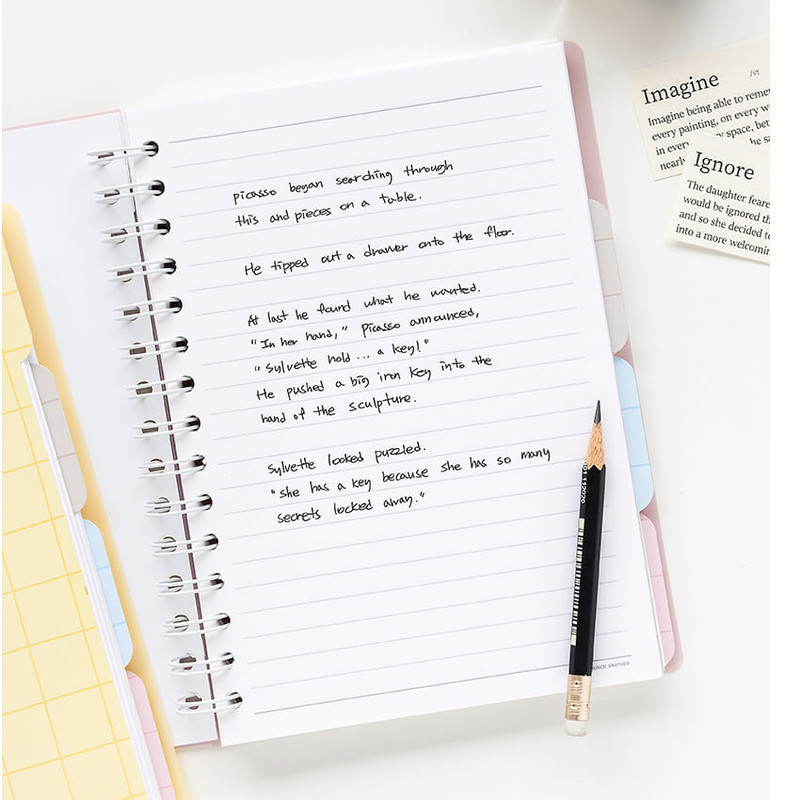 picasso began searching through
this and pieces on a table.
He tipped out a drawer onto the floor.
At last he found what he wanted.
"In her hand," picasso announced,
"Sylvette hold... a key!"
He pushed a big iron key into the
hand of the sculpture.
Sylvette looked puzzled.
"she has a key because she has so many
secrets locked away."
Imagine
/vt
Imagine being able to
every painting, on every
in every space,
he
Ignore
The daughter
would be ignored
and so she decided
into a more